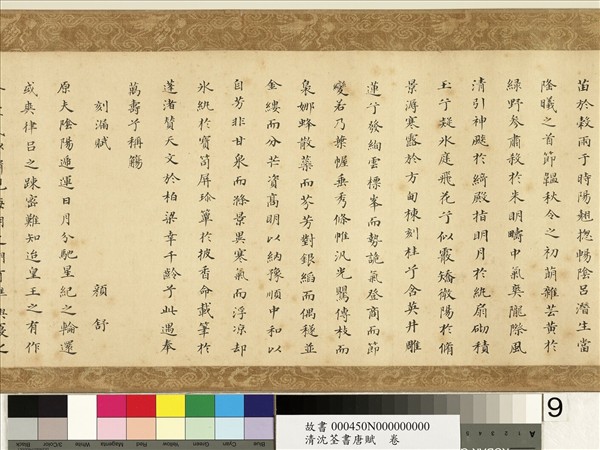 苗於穀雨于時陽翹揔暢陰呂潛生當
隆曦之首節韞秋令之初萠雜芸黃於
綠野參肅殺於朱明疇中氣奧隴際風
清引神飈於綺殿掿明月於紈扇砌積
玉兮凝氷庭飛花兮似霰矯微陽於脩
景溽寒露於方甸棟刻桂兮含英井雕
蓮兮發絢雲標峯而勢詭氣登商而節
變若乃葉幄垂秀條帷汎光驚傳枝而
裊娜蜂散蘂而芬芳對銀縚而偶穟並
金縷而分芒資高明以納豫順中和以
自芳非甘泉而滌景異寒氣而浮凉却
氷紈於寶笥屏瑜簟於披香命載筆於
蓬渚賛天文於柏梁幸千齡兮此遇奉
萬壽兮稱觴
刻漏賦
顔舒
原夫陰陽遞運日月分馳星紀之輪還
或爽律呂之踈密難知迨皇王之有作
9
故書 000450N000000000
清沈荃書唐賦 卷
Black
3/Color
White
Magenta
Red
Yellow
Green
Cyan
Blue
A